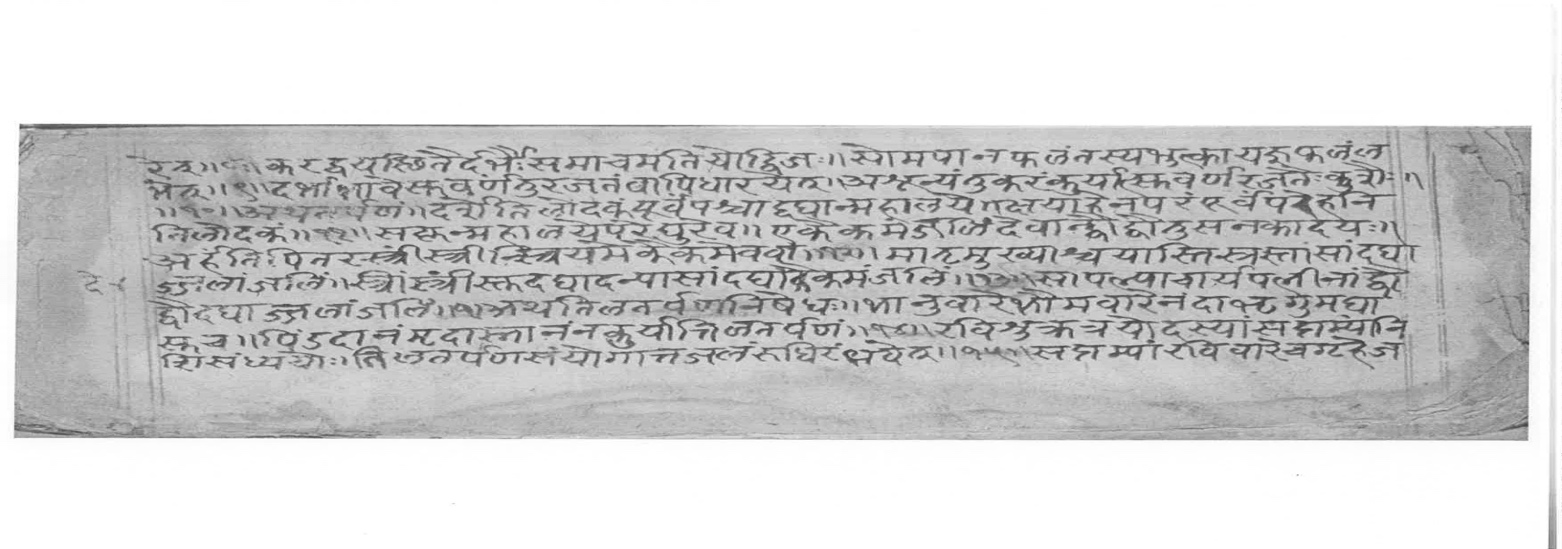 रेत्॥ ॥करद्वयस्थितैर्दर्भैः समाचमति यो द्विजः॥ सोमपानफलं तस्य भुक्त्वा यज्ञफलं ल
भेत्॥९॥ दर्भाभावे स्कवर्णं तु रजतं वापि धारयेत्॥ अश्रून्यं तु करं कुर्यात्स्कवर्णरजतैः कुशैः॥
॥१०॥अथ तर्पणं॥ तिलोदकं पूर्वं पश्चाद्दद्यान्महालये॥ क्षयाहेन परं पूर्वं परेहनि
तिलोदकं॥११॥ सकृन्महालये परेद्युरेव॥ एकैकमंजलिं देवान्द्वौ द्वौ तु सनकादयः॥
अर्हंति पितरस्त्रींस्त्रीन्स्त्रियमेकैकमेव च॥ ॥मातृमुख्याश्च यास्तिस्त्रस्तासां दद्या
ज्जलांजलिं॥ स्त्रींस्त्रींस्क दद्यादन्यासां दद्यादेकमंजलिं॥ ॥सापत्न्याचार्यपत्नीनां द्वौ
द्वौ दद्याज्जलांजलिं॥ ॥अथ तिलतर्पणनिषेधः॥ भानुवारे भौमवारे नंदाभृगुमघा
स्क च॥ पिंडदानं मृदास्नानं न कुर्यात्तिलतर्पणं॥१४॥ रविशुक्रत्रयोदस्यां सप्तम्यां नि
शि संध्ययोः॥ तिलतर्पणसंयोगात्तज्जलं रुधिरं भवेत्॥१५॥ सप्तम्यां रविवारे च गृहे ज